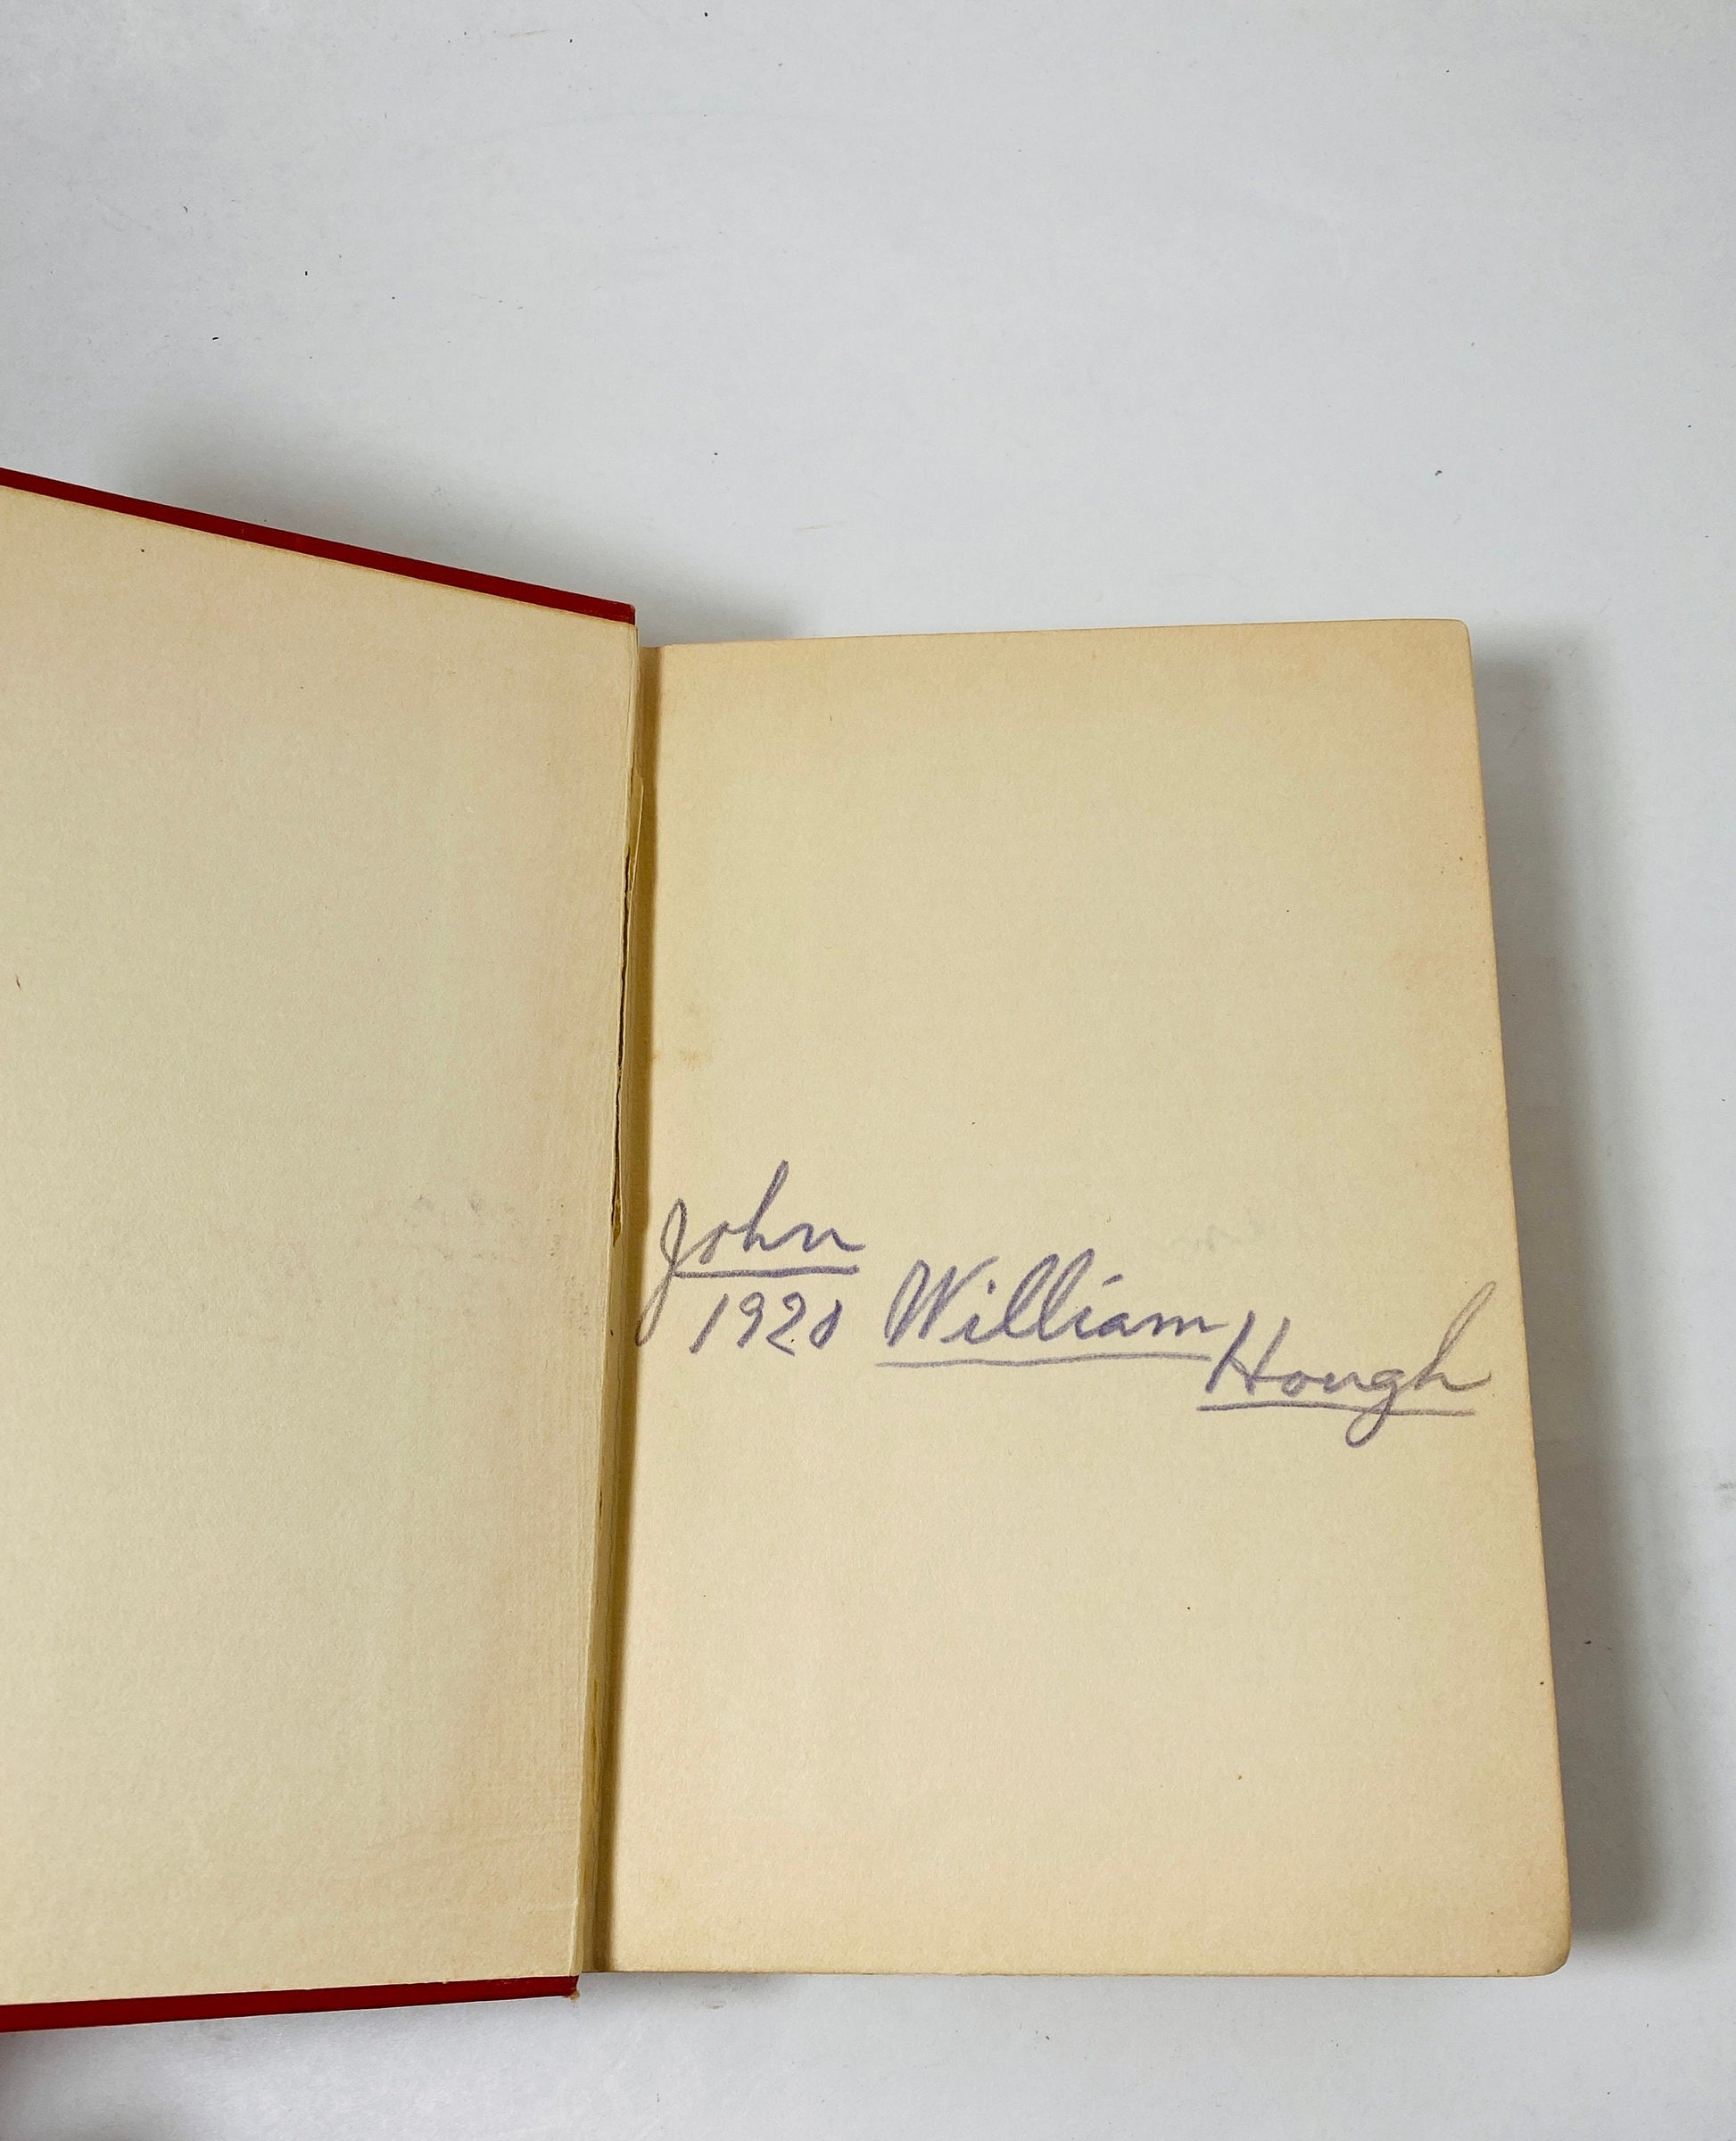 John
1920 William
Hough